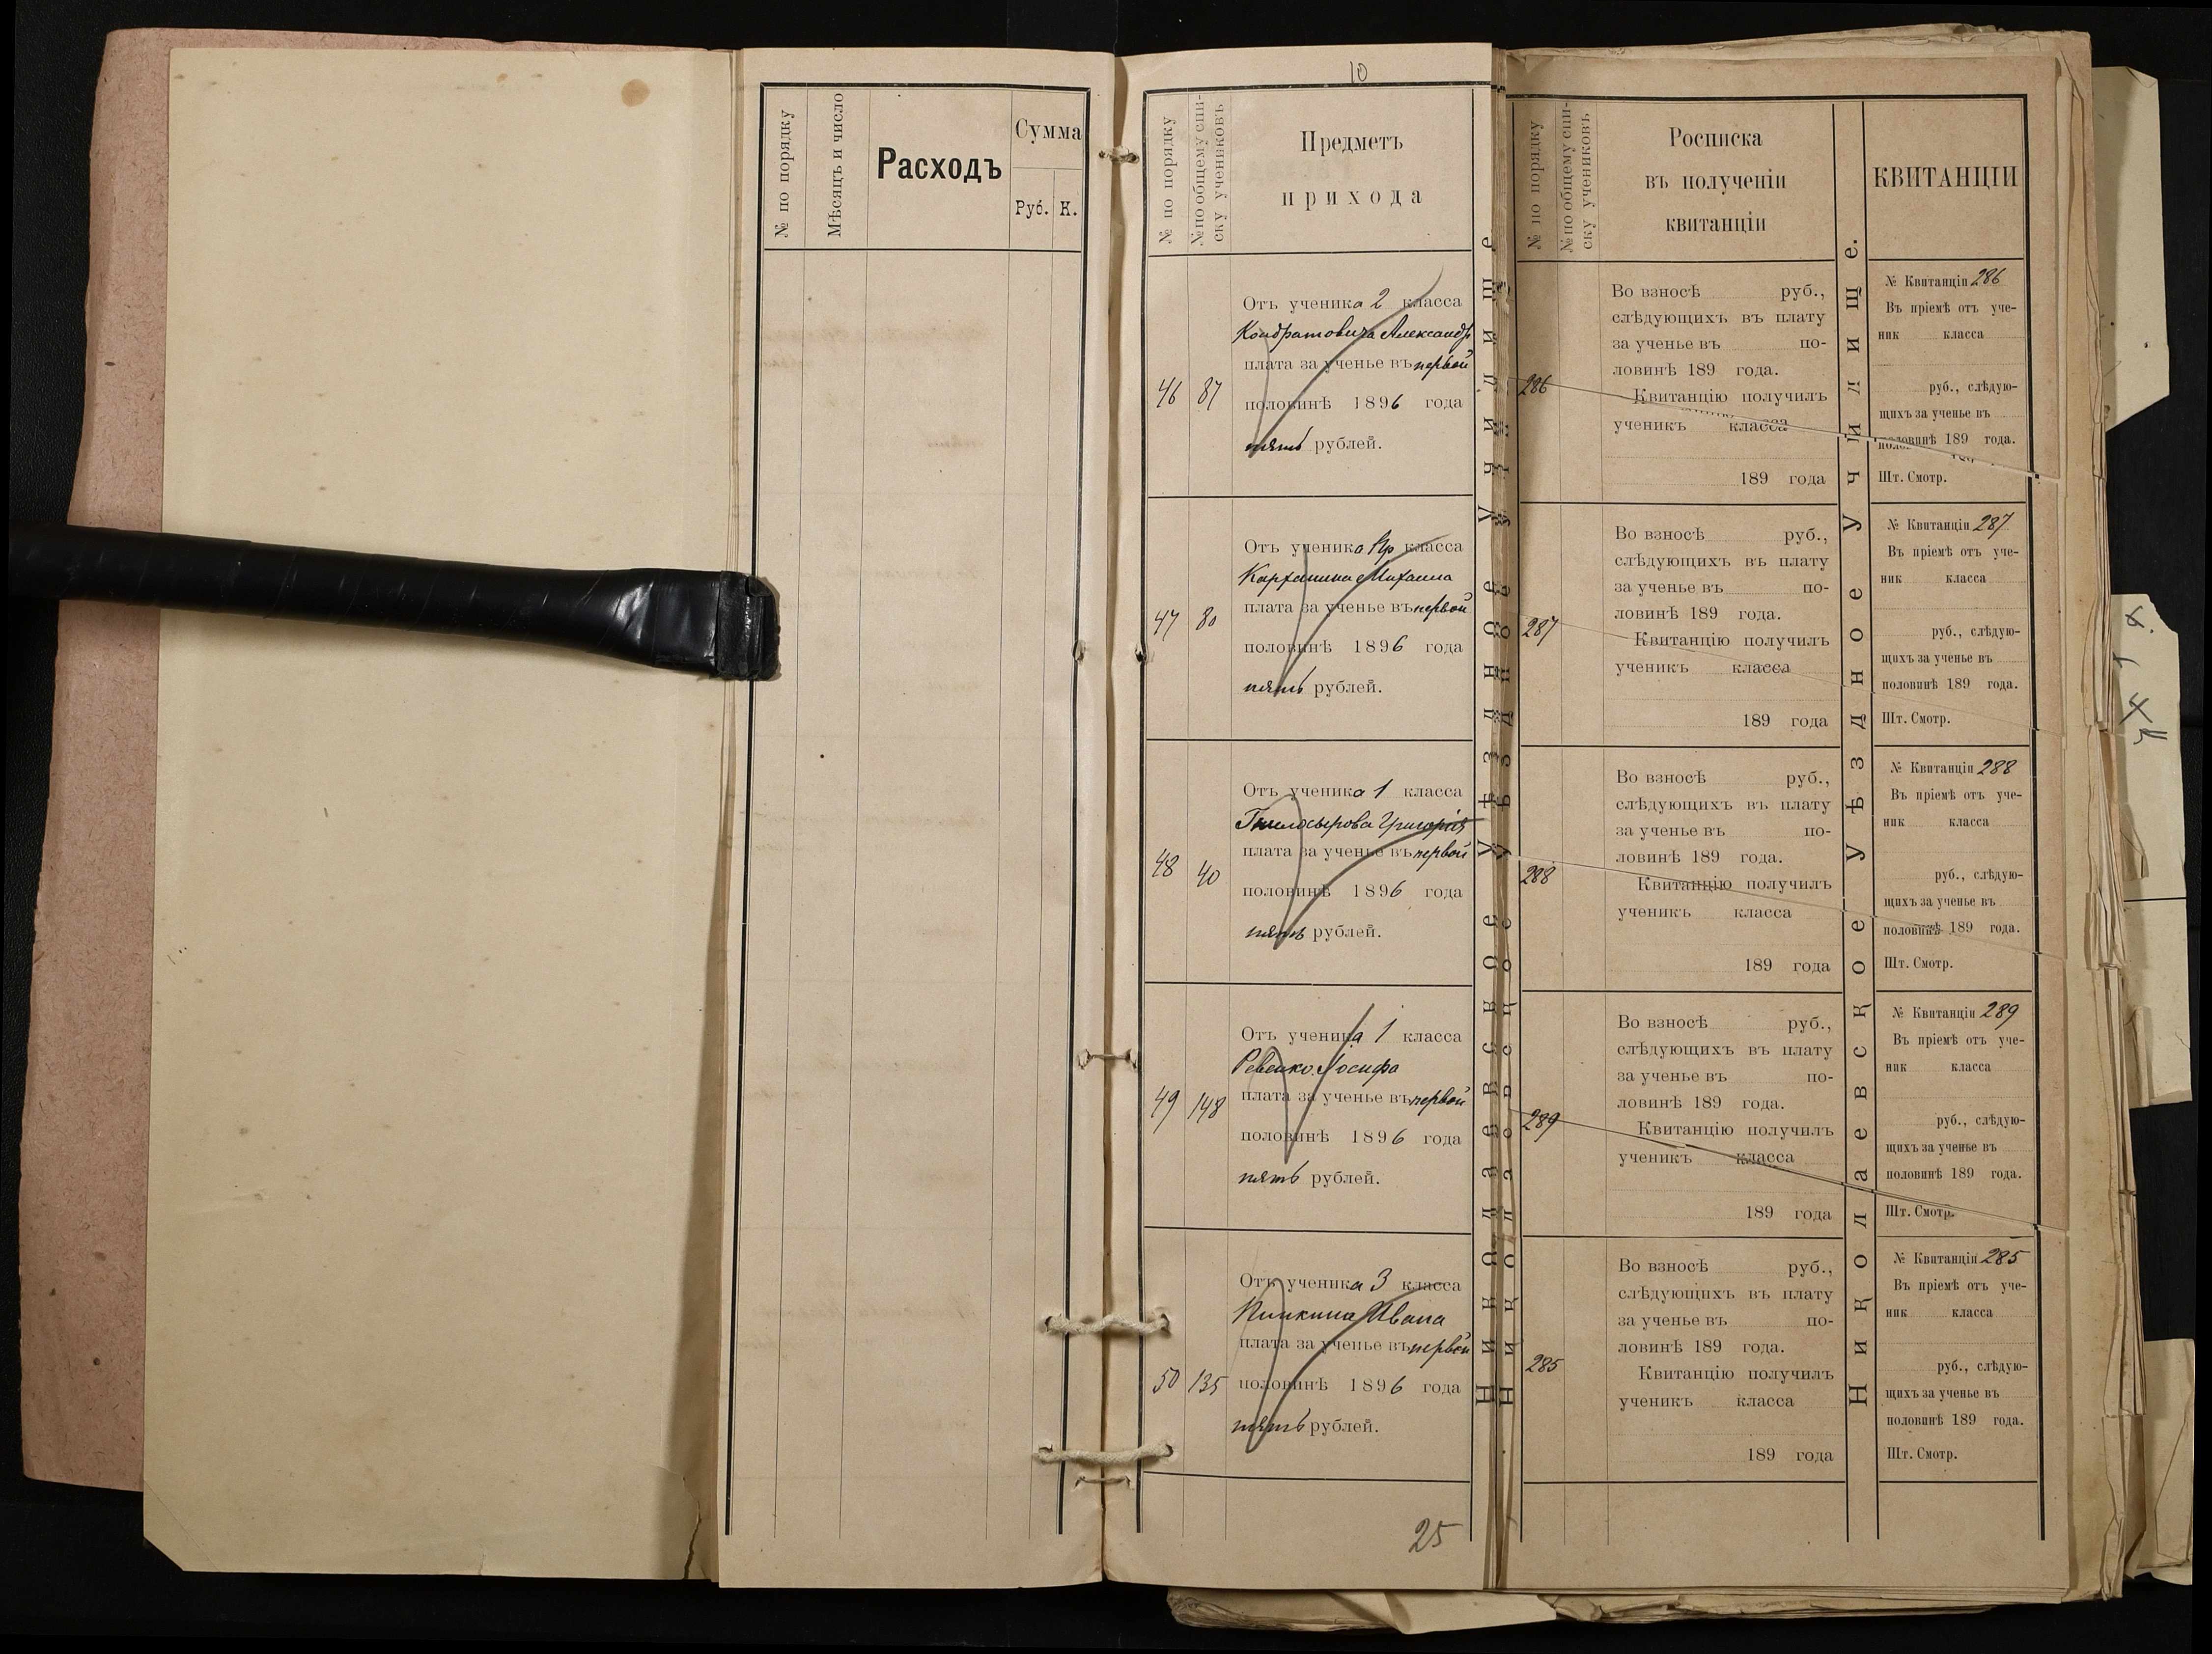 № по порядку
Мѣсяцъ и число
Расходъ
Сумма
Руб. К.
10
№ по порядку
№ по общему спи-
ску учениковъ
Предметъ
прихода
46 87
Отъ ученика 2 класса
Кондратовича Александр
плата за ученье въ первой
половинѣ 1896 года
пять рублей.
47 80
Отъ ученика Пр класса
Михаила
плата за ученье въ первой
половинѣ 1896 года
пять рублей.
48 40
Отъ ученика 1 класса
Гнилосырова Григорія
плата за ученье въ первой
половинѣ 1896 года
пять рублей.
49 148
Отъ ученика 1 класса
Ревенко Іосифа
плата за ученье въ первой
половинѣ 1896 года
пять рублей.
50 135
Отъ ученика 3 класса
Ивана
плата за ученье въ первой
половинѣ 1896 года
пять рублей.
25
Николаевское Уѣздное Училище
№ по порядку
№ по общему спи-
ску учениковъ
Росписка
въ полученіи
квитанціи
286
Во взносѣ руб.,
слѣдующихъ въ плату
за ученье въ по-
ловинѣ 189 года.
Квитанцію получилъ
ученикъ класса
189 года
287
Во взносѣ руб.,
слѣдующихъ въ плату
за ученье въ по-
ловинѣ 189 года.
Квитанцію получилъ
ученикъ класса
189 года
288
Во взносѣ руб.,
слѣдующихъ въ плату
за ученье въ по-
ловинѣ 189 года.
Квитанцію получилъ
ученикъ класса
189 года
289
Во взносѣ руб.,
слѣдующихъ въ плату
за ученье въ по-
ловинѣ 189 года.
Квитанцію получилъ
ученикъ класса
189 года
285
Во взносѣ руб.,
слѣдующихъ въ плату
за ученье въ по-
ловинѣ 189 года.
Квитанцію получилъ
ученикъ класса
189 года
Николаевское Уѣздное Училище.
КВИТАНЦІИ
№ Квитанціи 286
Въ пріемѣ отъ уче-
ник класса
руб., слѣдую-
щихъ за ученье въ
половинѣ 189 года.
Шт. Смотр.
№ Квитанціи 287
Въ пріемѣ отъ уче-
ник класса
руб., слѣдую-
щихъ за ученье въ
половинѣ 189 года.
Шт. Смотр.
№ Квитанціи 288
Въ пріемѣ отъ уче-
ник класса
руб., слѣдую-
щихъ за ученье въ
половинѣ 189 года.
Шт. Смотр.
№ Квитанціи 289
Въ пріемѣ отъ уче-
ник класса
руб., слѣдую-
щихъ за ученье въ
половинѣ 189 года.
Шт. Смотр.
№ Квитанціи 285
Въ пріемѣ отъ уче-
ник класса
руб., слѣдую-
щихъ за ученье въ
половинѣ 189 года.
Шт. Смотр.